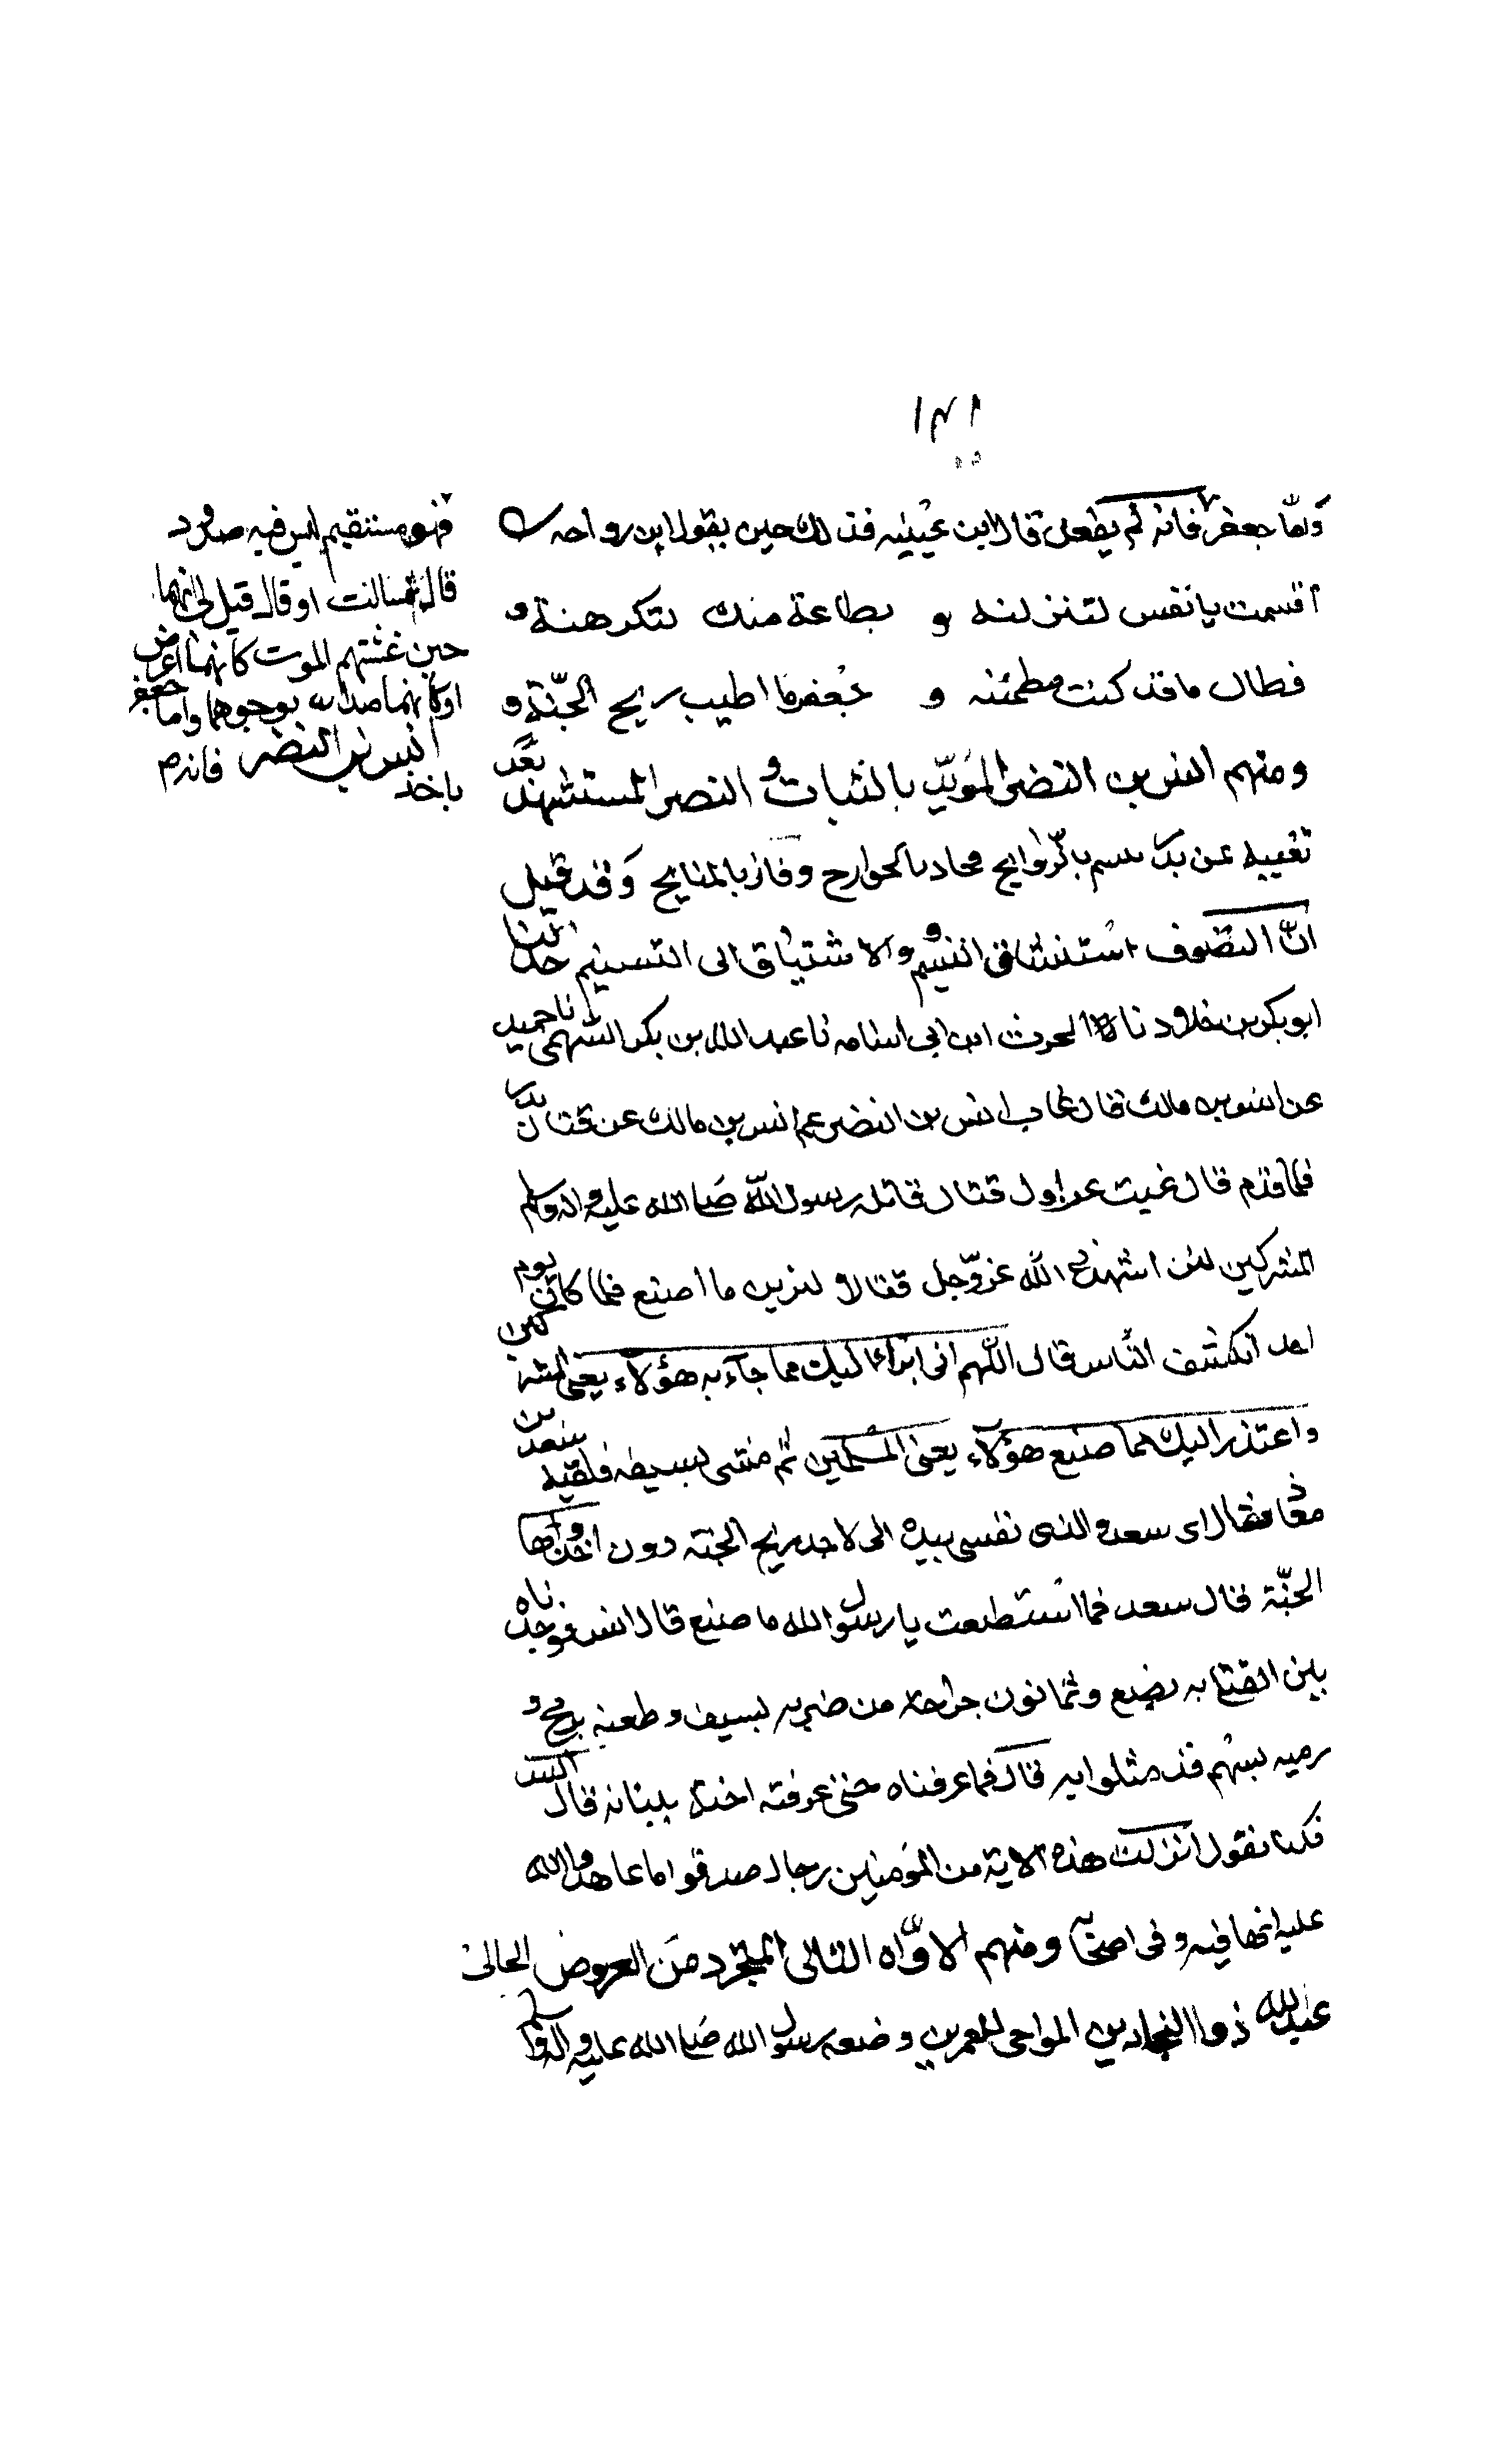 ١٣١
واما جعفر فانه لم يفعل قال ابن عيينه فذلك حين يقول ابن رواحه
اقسمت يا نفس لتنزلنه و بطاعة منك لتكرهنة و
فطال ما قد كنت مطمئنه و جعفر ما اطيب ريح الجنّة و
ومنهم انس بن النضر المويّد بالثبات و النصر المستشهد بعد
تغيبه عن بدر باكرّوايح بالجوارح وفاز بالمنايح وقد قيل
انّ التصوف استنشاق النسيم والاشتياق الى التسنيم حدثنا
ابو بكر بن خلاد نا الحرث ابن ابى اسامه نا عبد الله بن بكر السهمى نا حميد
عن انس بن مالك قال غاب انس بن النضر عم انس بن مالك عن قتال بدر
فلما قدم قال غبت عن اول قتال قاتله رسول الله صلى الله عليه واله وسلم
المشركين لئن اشهدنى الله عزّوجل قتالا ليرين ما اصنع فلما كان يوم
احد انكشف النّاس قال اللّهم انى ابرأ اليك مما جآء به هؤلآء يعنى المشركين
واعتذر اليك مما صنع هؤلآء يعنى المسلمين ثم مشى بسيفه فلقيه سعد بن
معاذ فقال اى سعد والذى نفسى بيده انى لاجد ريح الجنّة دون احد واها
الجنّة قال سعد فما استطعت يا رسول الله ما صنع قال انس فوجدناه
بين القتلى به بضع وثمانون جراحة من ضربه بسيف وطعنه برمح و
رميه بسهم قد مثلوا به قال فما عرفناه حتى عرفته اخته ببنانه قال انس
فكنا نقول انزلت هذه الاية من المومنين رجال صدقوا ما عاهدوا الله
عليه انها فيه وفى اصحابه ومنهم الاوّاه التالى المتجرد من العروض الخالى
عبد الله ذو البجادين وضعه رسول الله صلى الله عليه واله وسلم
فهو مستقيم ليس فيه صدود
قال فسالت او قال قيل لى انهما
حين غشيهم الموت كانهما اعرض
او كانهما صدا بوجوههما واما جعفر
انس بن النضر فانه لم
ياخذ